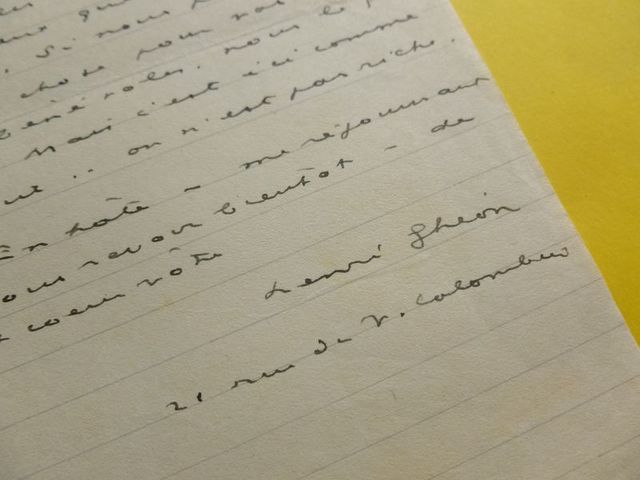 Si nous
chose pour vos
bénévoles. nous le
Mais c'est ici comme
.. on n'est pas riche.
En hâte – me réjouissant
vous revoir bientôt – de
coeur vôtre
Henri Ghéon
21 rue du V. Colombier